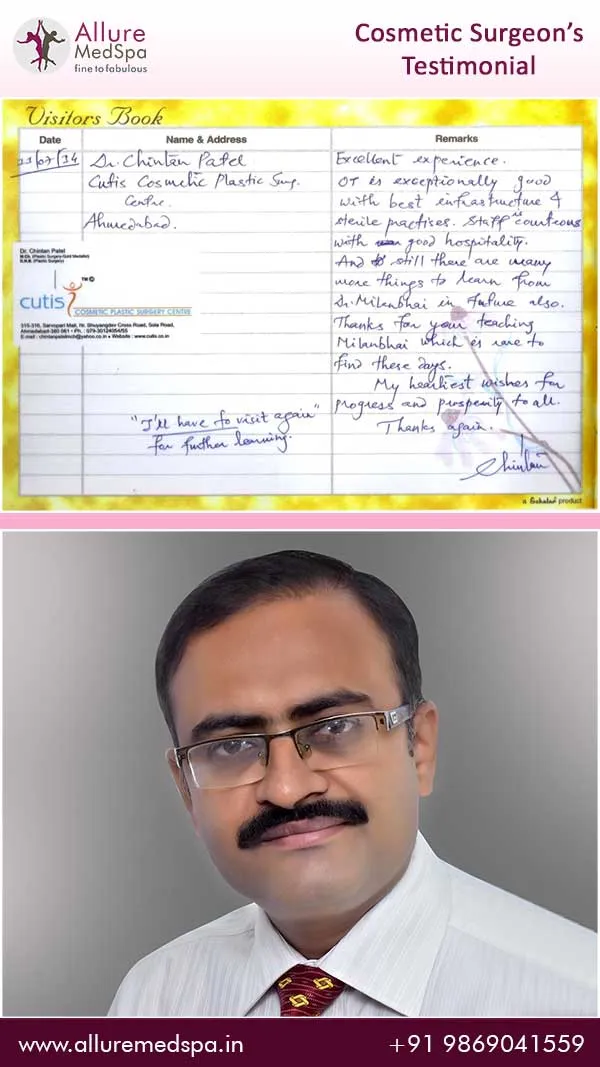 Allure
MedSpa
fine to fabulous
Cosmetic Surgeon's
Testimonial
Visitors Book
Date
Name & Address
Remarks
Dr. Chintan Patel
Cutis Cosmetic Plastic Surg.
Centre.
Ahmedabad.
Dr. Chintan Patel
M.Ch. (Plastic Surgery-Gold Medalist)
D.N.B. (Plastic Surgery)
TM ©
cutis
COSMETIC PLASTIC SURGERY CENTRE
315-316, Sarvopari Mall, Nr. Bhuyangdev Cross Road, Sola Road,
Ahmedabad-380 061 • Ph. : 079-30124054/55
E-mail : chintanpatelmch@yahoo.co.in • Website : www.cutis.co.in
"I'll have to visit again"
for further learning.
Excellent experience.
OT is exceptionally good
with best infrastructure &
sterile practises. Staff is courteous
with good hospitality.
And still there are many
more things to learn from
Dr. Milanbhai in future also.
Thanks for your teaching
Milanbhai which is rare to
find these days.
My heartiest wishes for
progress and prosperity to all.
Thanks again.
Chintan
a product
www.alluremedspa.in
+91 9869041559